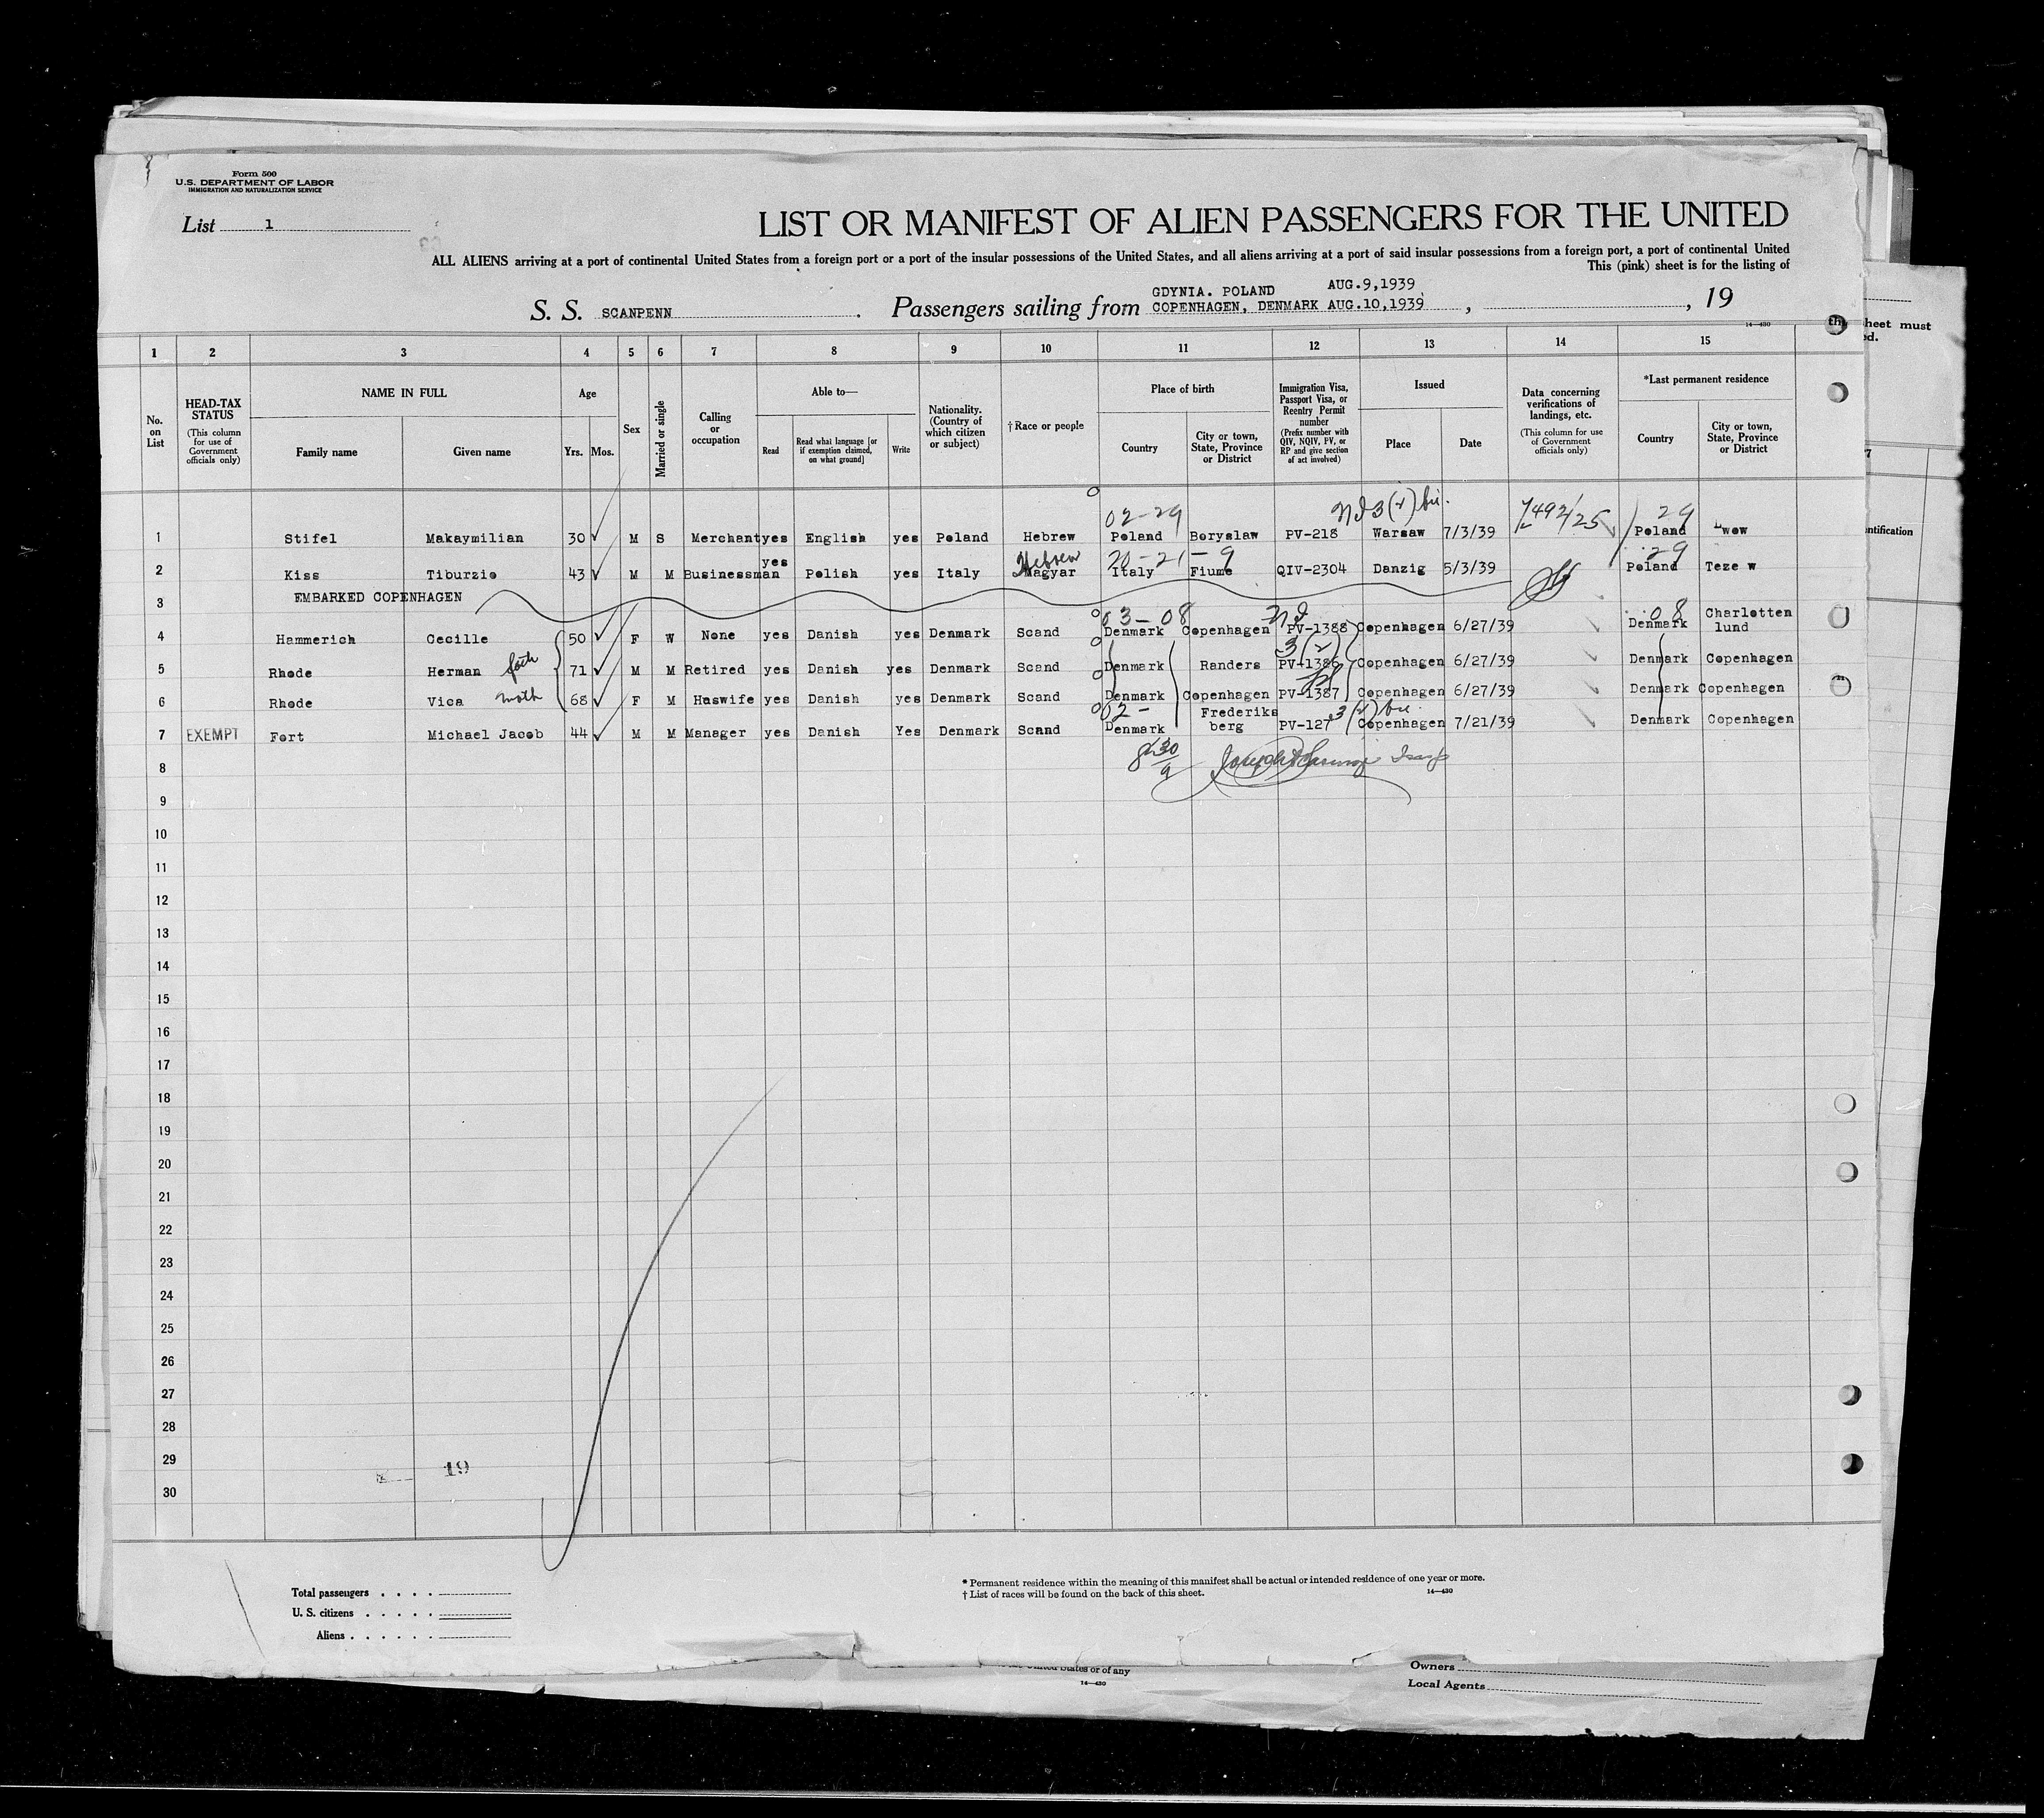 Form 500
U.S. DEPARTMENT OF LABOR
IMMIGRATION AND NATURALIZATION SERVICE
List 1
LIST OR MANIFEST OF ALIEN PASSENGERS FOR THE UNITED
ALL ALIENS arriving at a port of continental United States from a foreign port or a port of the insular possessions of the United States, and all aliens arriving at a port of said insular possessions from a foreign port, a port of continental United
This (pink) sheet is for the listing of
S. S. SCANPENN. Passengers sailing from GDYNIA. POLAND AUG.9,1939
COPENHAGEN, DENMARK AUG.10,1939, , 19
14—430
heet must
ed.
1 2 3 4 5 6 7 8 9 10 11 12 13 14 15
No. on List
HEAD-TAX STATUS (This column for use of Government officials only)
NAME IN FULL
Family name Given name
Age
Yrs. Mos.
Sex
Married or single
Calling or occupation
Able to—
Read
Read what language [or if exemption claimed, on what ground]
Write
Nationality. (Country of which citizen or subject)
†Race or people
Place of birth
Country
City or town, State, Province or District
Immigration Visa, Passport Visa, or Reentry Permit number (Prefix number with QIV, NQIV, PV, or RP and give section of act involved)
Issued
Place Date
Data concerning verifications of landings, etc. (This column for use of Government officials only)
*Last permanent residence
Country
City or town, State, Province or District
ntification
02-29 3(2) 29
1 Stifel Makaymilian 30 M S Merchant yes English yes Poland Hebrew Poland Boryslaw PV-218 Warsaw 7/3/39 Poland Lwow
Hebrew 20-21-9 29
2 Kiss Tiburzio 43 M M Businessman yes Polish yes Italy Magyar Italy Fiume QIV-2304 Danzig 5/3/39 Poland Teze w
3 EMBARKED COPENHAGEN
03-08 08
4 Hammerich Cecille 50 F W None yes Danish yes Denmark Scand Denmark Copenhagen PV-1388 Copenhagen 6/27/39 Denmark Charlotten lund
3(2)
5 Rhode Herman fath 71 M M Retired yes Danish yes Denmark Scand Denmark Randers PV-1386 Copenhagen 6/27/39 Denmark Copenhagen
6 Rhode Vica moth 68 F M Huswife yes Danish yes Denmark Scand Denmark Copenhagen PV-1387 Copenhagen 6/27/39 Denmark Copenhagen
02- 3(2)
7 EXEMPT Fort Michael Jacob 44 M M Manager yes Danish Yes Denmark Scand Denmark Frederiks berg PV-127 Copenhagen 7/21/39 Denmark Copenhagen
8
9
10
11
12
13
14
15
16
17
18
19
20
21
22
23
24
25
26
27
28
29
19
30
Total passengers
U. S. citizens
Aliens
* Permanent residence within the meaning of this manifest shall be actual or intended residence of one year or more.
† List of races will be found on the back of this sheet.
14—430
United States or of any
14—430
Owners
Local Agents